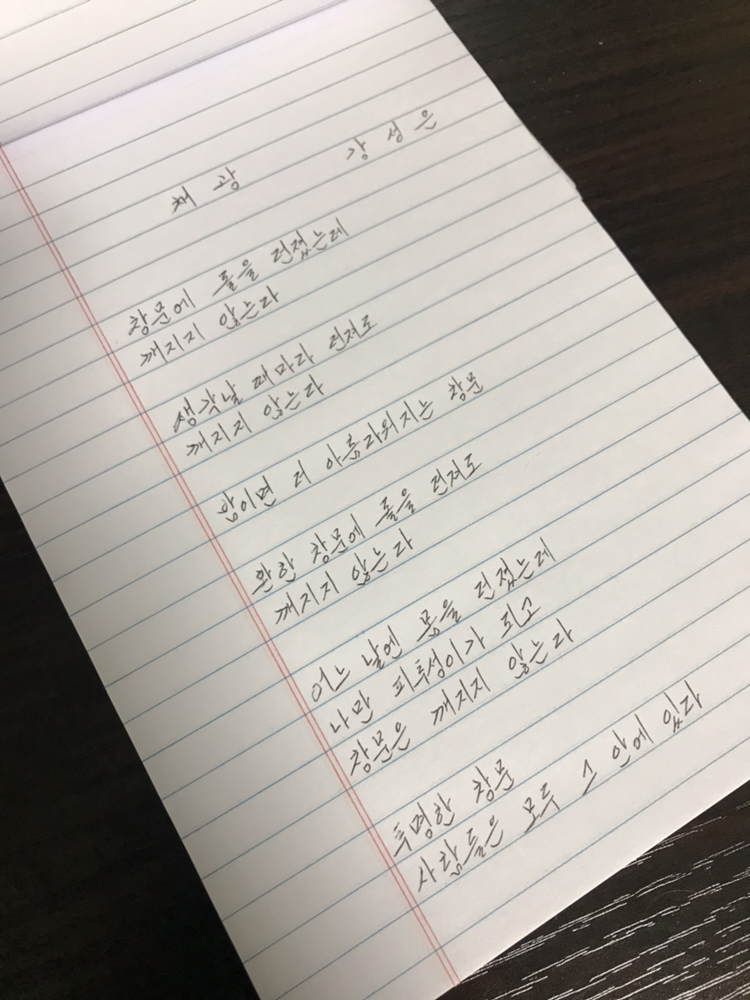 채광 강성은
창문에 돌을 던졌는데
깨지지 않는다
생각날 때마다 던져도
깨지지 않는다
밤이면 더 아름다워지는 창문
환한 창문에 돌을 던져도
깨지지 않는다
어느 날엔 몸을 던졌는데
나만 피투성이가 되고
창문은 깨지지 않는다
투명한 창문
사람들은 모두 그 안에 있다